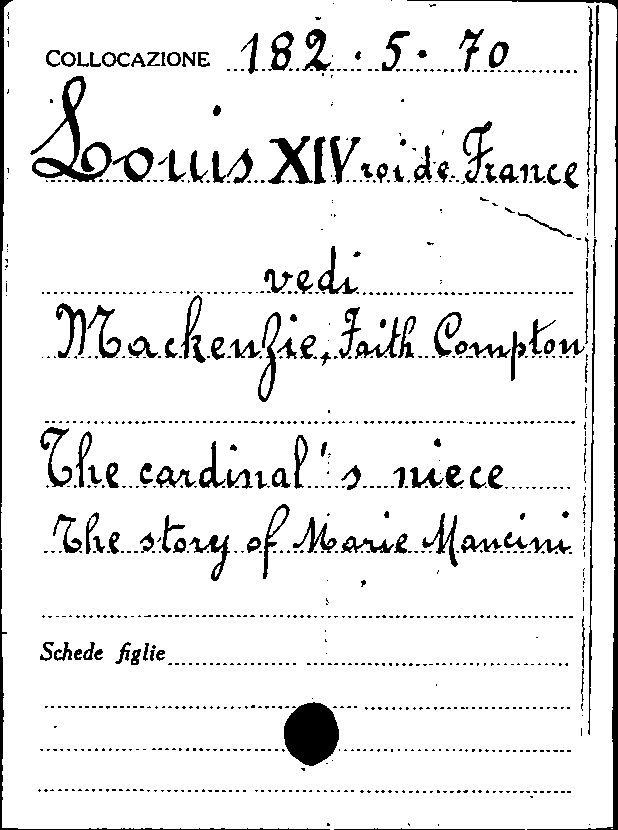 COLLOCAZIONE 182.5.70
Louis XIV roi de France
vedi
Mackenzie, Faith Compton
The cardinal's niece
The story of Marie Mancini
Schede figlie